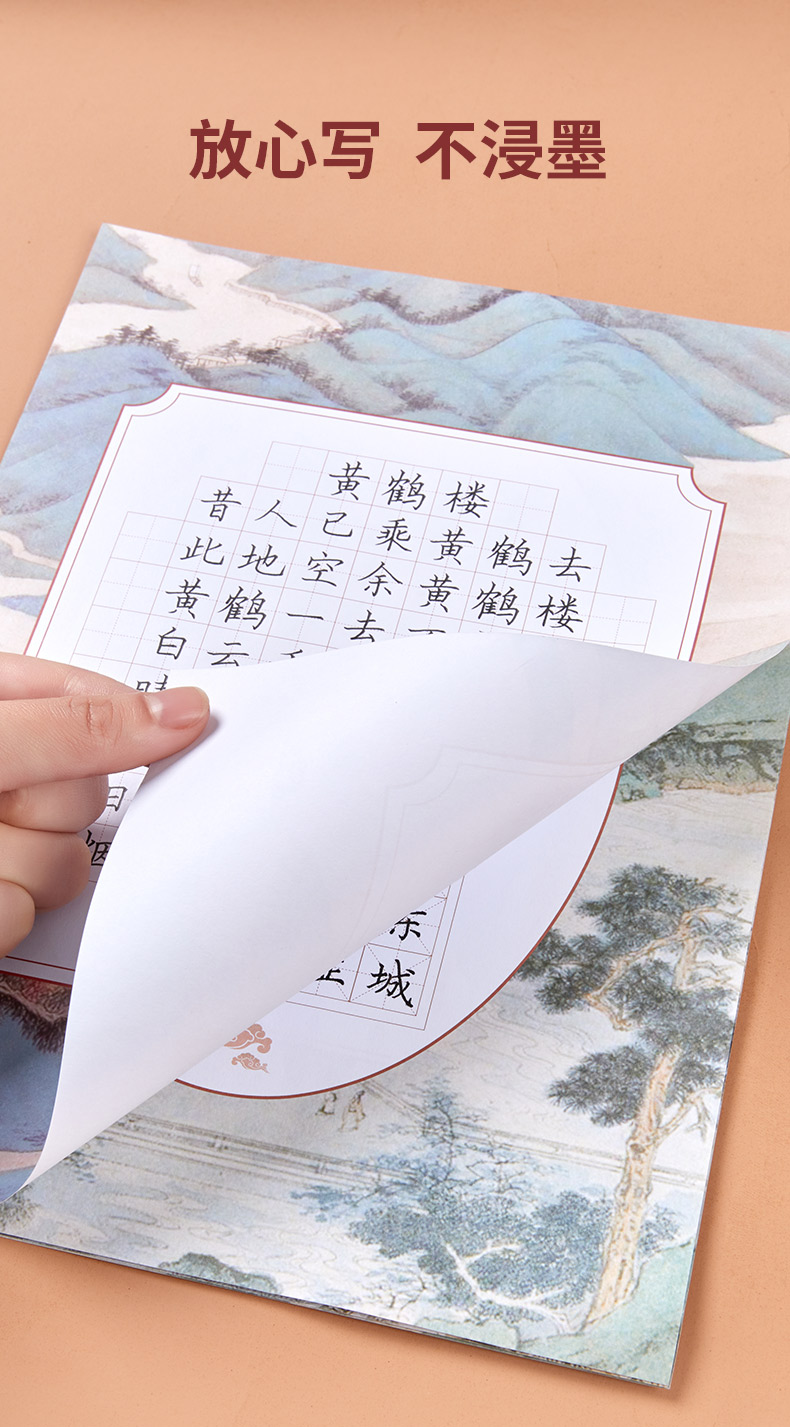 放心写 不浸墨
黄鹤楼
昔人已乘黄鹤去
此地空余黄鹤楼
黄鹤一去
白云
东
城